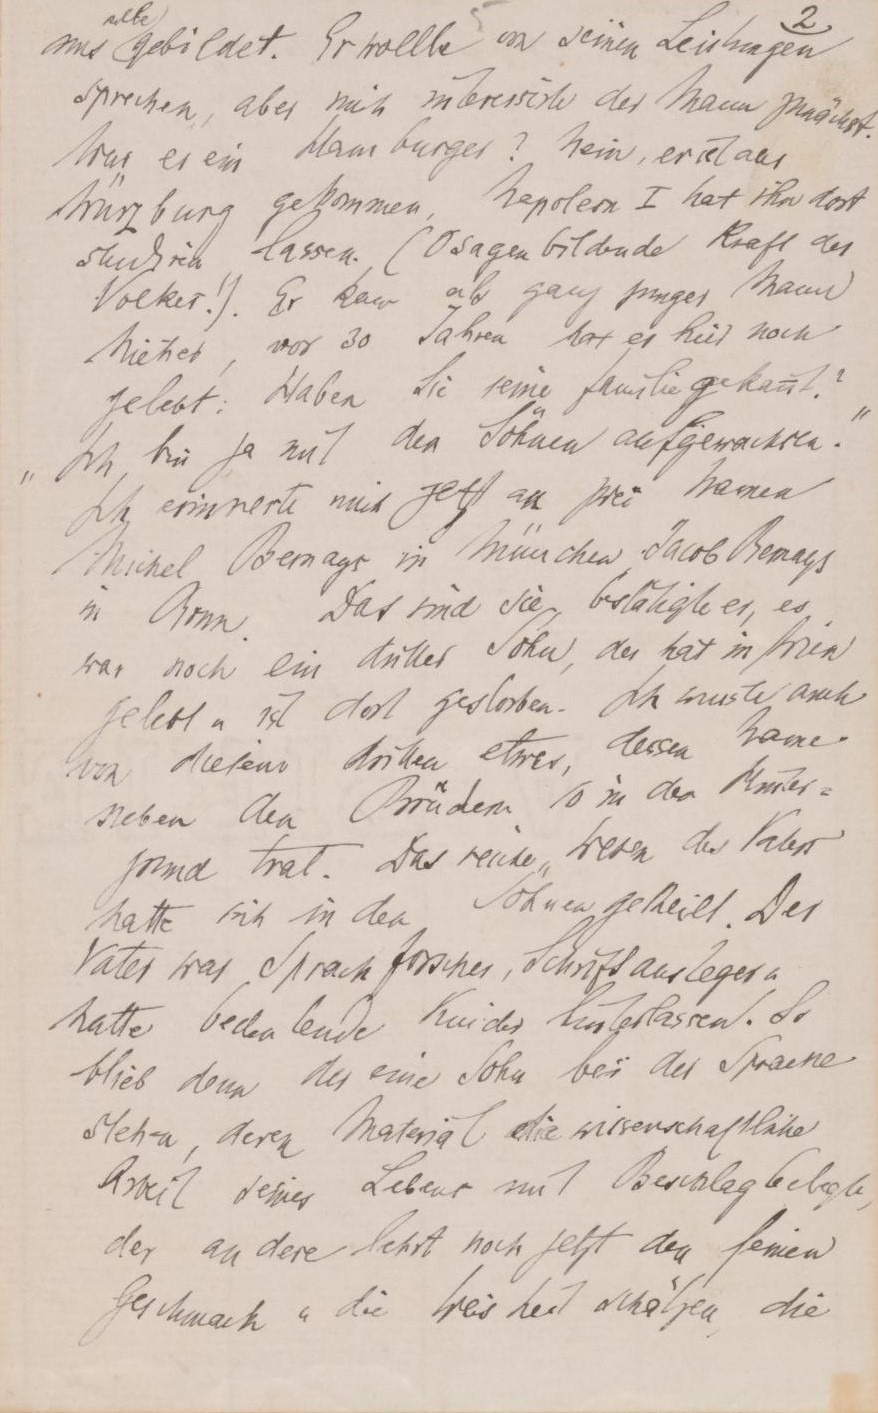 2
alle
uns gebildet. Er wollte von seinen Leistungen
sprechen, aber mich interessirte der Mann zunächst.
War er ein Hamburger? Nein, er ist aus
Würzburg gekommen, Napoleon I hat ihn dort
studiren lassen. (O sagenbildende Kraft des
Volkes!). Er kam als ganz junger Mann
hieher, vor 30 Jahren hat er hier noch
gelebt. Haben Sie seine Familie gekannt?
„Ich bin ja mit den Söhnen aufgewachsen.“
Ich erinnerte mich jetzt an zwei Namen
Michel Bernays in München Jacob Bernays
in Bonn. Das sind sie, bestätigte er, es
war noch ein dritter Sohn, der hat in Wien
gelebt u ist dort gestorben. Ich wusste auch
von diesem dritten etwas, dessen Name
neben den Brüdern so in den Hinter=
grund trat. Das reiche Wesen des Vaters
hatte sich in den Söhnen getheilt. Der
Vater war Sprachforscher, Schriftausleger u
hatte bedeutende Kinder hinterlassen. So
blieb denn der eine Sohn bei der Sprache
stehen, deren Material die wissenschaftliche
Arbeit seines Lebens mit Beschlag belegte,
der andere lehrt noch jetzt den feinen
Geschmack u die Weisheit schätzen, die